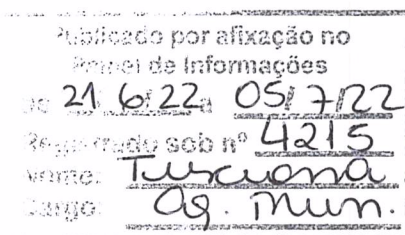 Publicado por afixação no
Painel de Informações
de 21/6/22 a 05/7/22
Registrado sob nº 4215
Nome:
Cargo: Ag. Mun.